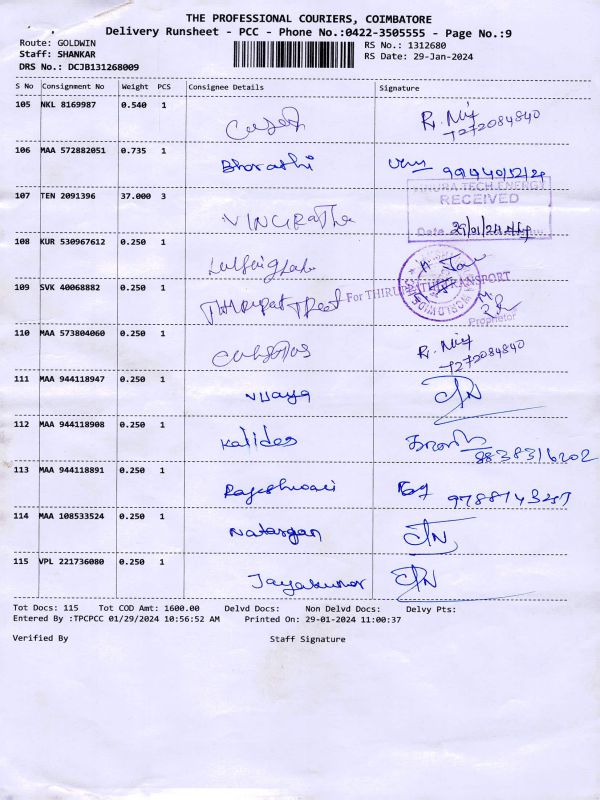 THE PROFESSIONAL COURIERS, COIMBATORE
Delivery Runsheet - PCC - Phone No.:0422-3505555 - Page No.:9
Route: GOLDWIN
RS No.: 1312680
Staff: SHANKAR
RS Date: 29-Jan-2024
DRS No.: DCJB131268009
S No Consignment No Weight PCS Consignee Details Signature
105 NKL 8169987 0.540 1
7272084840
106 MAA 572882051 0.735 1 Bharathi
107 TEN 2091396 37.000 3
TECH ENERGY
RECEIVED
Date 29/01/24
108 KUR 530967612 0.250 1
109 SVK 40068882 0.250 1
For THIRUPATHI TRANSPORT
Proprietor
110 MAA 573804060 0.250 1
7272084840
111 MAA 944118947 0.250 1 Vijaya
112 MAA 944118908 0.250 1 Kalidos
8838316202
113 MAA 944118891 0.250 1 Rajeshwari
114 MAA 108533524 0.250 1 Natargan
115 VPL 221736080 0.250 1 Jayakumar
Tot Docs: 115 Tot COD Amt: 1600.00 Delvd Docs: Non Delvd Docs: Delvy Pts:
Entered By :TPCPCC 01/29/2024 10:56:52 AM Printed On: 29-01-2024 11:00:37
Verified By Staff Signature